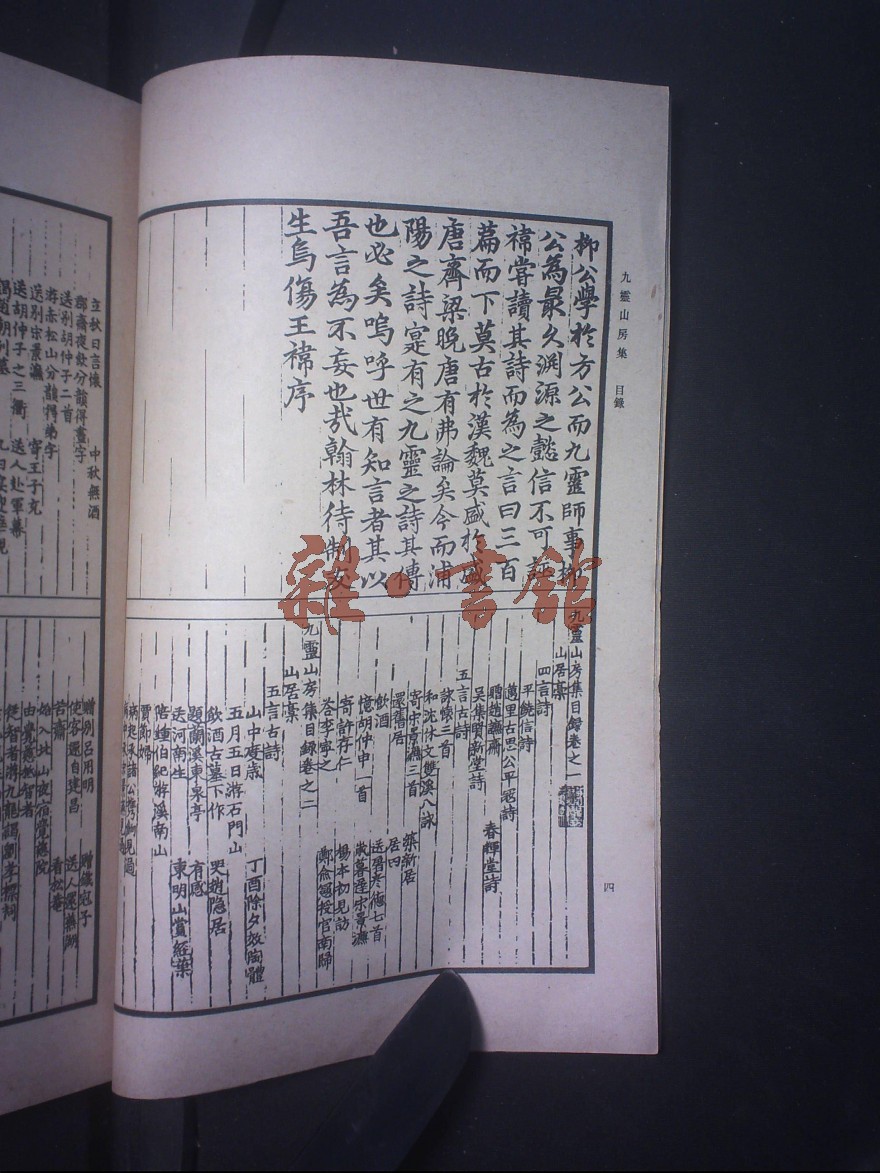 九靈山房集 目錄
四
柳公學於方公而九靈師事柳
公為最久淵源之懿信不可誣
褘嘗讀其詩而為之言曰三百
篇而下莫古於漢魏莫盛於盛
唐齊梁晚唐有弗論矣今而浦
陽之詩寔有之九靈之詩其傳
也必矣嗚呼世有知言者其以
吾言為不妄也哉翰林待制友
生烏傷王褘序
雜·書館
九靈山房集目錄卷之一
山居藁
四言詩
平饒信詩
萬里古思公平寇詩
贈趙讓齋
吳集賢新堂詩 春輝堂詩
五言古詩
詠懷三首
和沈休文雙溪八詠
寄宋景濂三首 築新居
還舊居 居四
飲酒 送胥彥德七首
憶胡仲申一首 歲暮逢宋景濂
寄許存仁 楊本初見訪
荅李寧之 鄭僉憲授官南歸
九靈山房集目錄卷之二
山居藁
五言古詩
山中度歲 丁酉除夕效陶體
五月五日游石門山
飲酒古墓下作 哭趙隱居
題蘭溪東泉亭 有感
送河南生 東明山賞紅葉
陪鍾伯紀游溪南山
賈節婦
病起承諸公
立秋日言懷 中秋無酒
郡齋夜飲分韻得畫字
送別胡仲子二首
游赤松山分韻得弟字
送別宋景濂 寄王子充
送胡仲子之三衢 送人赴軍幕
贈別呂用明 贈鐵冠子
使客還自建昌 送人還蕪湖
苔齋 看松菴
始入北山夜宿覺慈院
由覺慈然智者
從智者游九龍謁劉孝標祠